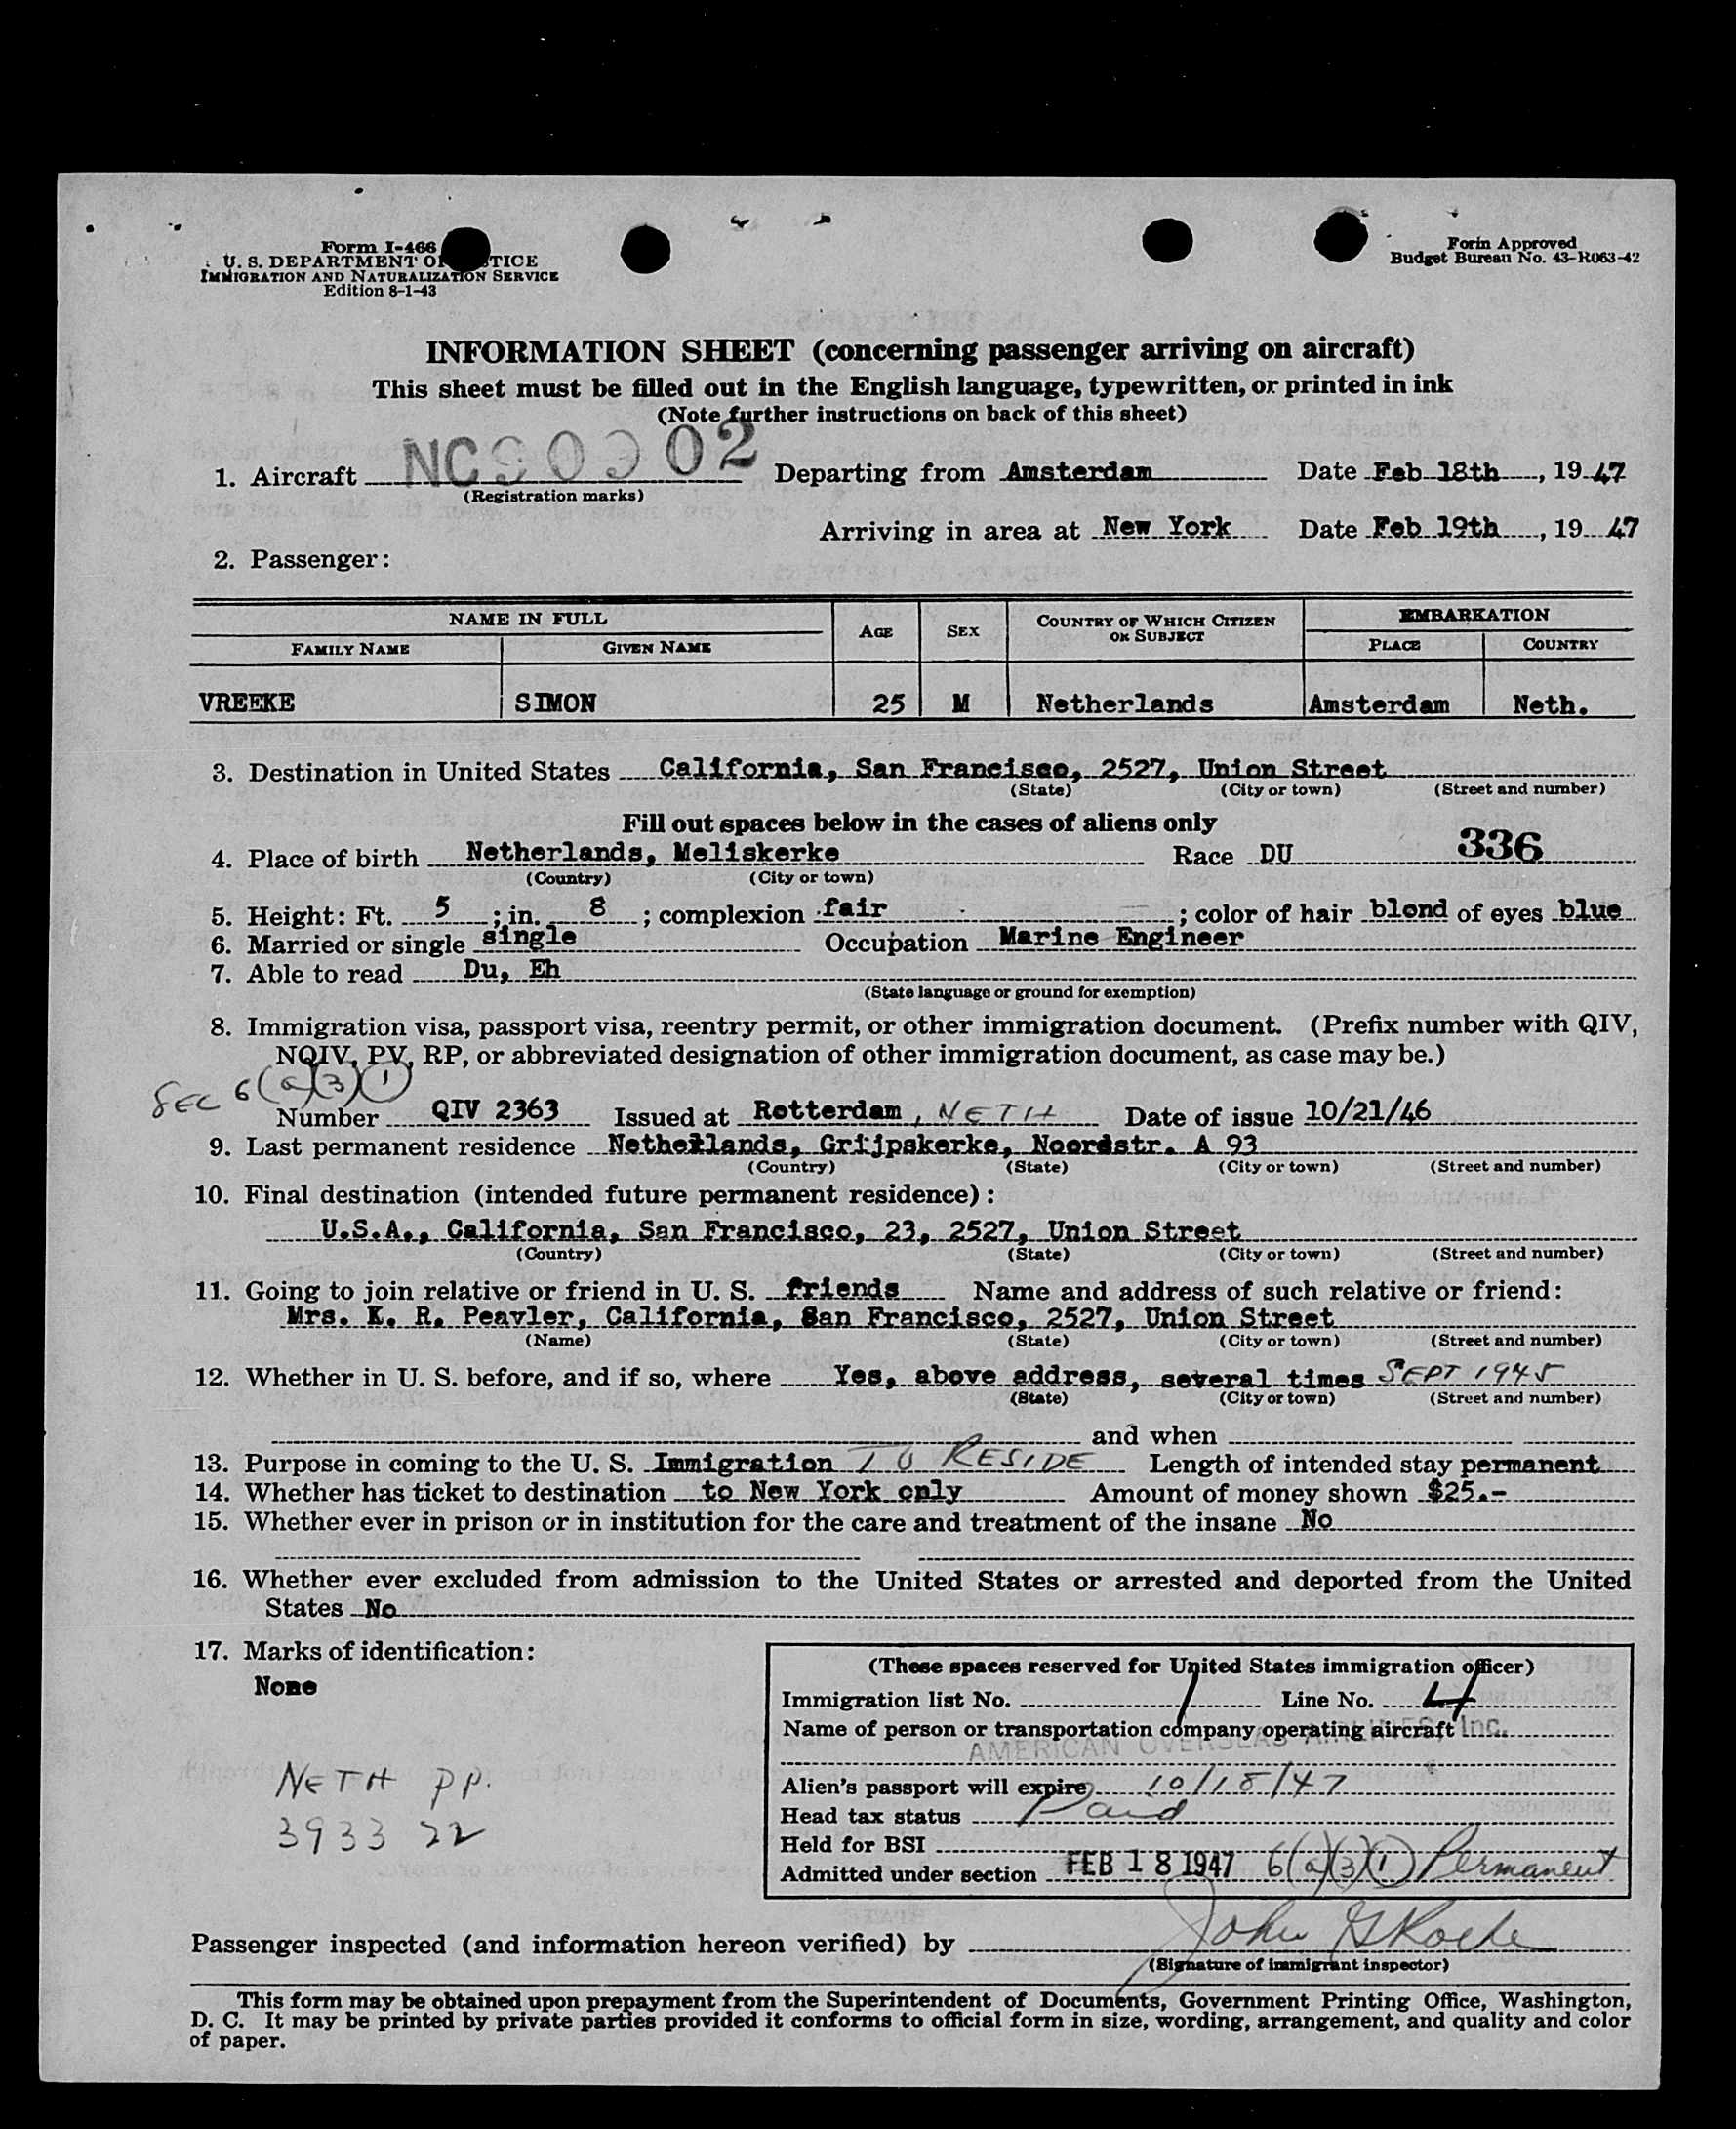 Form I-466
U. S. DEPARTMENT OF JUSTICE
IMMIGRATION AND NATURALIZATION SERVICE
Edition 8-1-43
Form Approved
Budget Bureau No. 43-R063-42
INFORMATION SHEET (concerning passenger arriving on aircraft)
This sheet must be filled out in the English language, typewritten, or printed in ink
(Note further instructions on back of this sheet)
1. Aircraft NC90902 Departing from Amsterdam Date Feb 18th, 1947
(Registration marks)
Arriving in area at New York Date Feb 19th, 19 47
2. Passenger:
NAME IN FULL AGE SEX COUNTRY OF WHICH CITIZEN OR SUBJECT EMBARKATION
FAMILY NAME GIVEN NAME PLACE COUNTRY
VREEKE SIMON 25 M Netherlands Amsterdam Neth.
3. Destination in United States California, San Francisco, 2527, Union Street
(State) (City or town) (Street and number)
Fill out spaces below in the cases of aliens only
336
4. Place of birth Netherlands, Meliskerke Race DU
(Country) (City or town)
5. Height: Ft. 5 ; in. 8 ; complexion fair ; color of hair blond of eyes blue
6. Married or single single Occupation Marine Engineer
7. Able to read Du, Eh
(State language or ground for exemption)
8. Immigration visa, passport visa, reentry permit, or other immigration document. (Prefix number with QIV,
NQIV, PV, RP, or abbreviated designation of other immigration document, as case may be.)
SEC 6(a)(3)(1)
Number QIV 2363 Issued at Rotterdam, NETH Date of issue 10/21/46
9. Last permanent residence Netherlands, Grijpskerke, Noordstr. A 93
(Country) (State) (City or town) (Street and number)
10. Final destination (intended future permanent residence):
U.S.A., California, San Francisco, 23, 2527, Union Street
(Country) (State) (City or town) (Street and number)
11. Going to join relative or friend in U. S. friends Name and address of such relative or friend:
Mrs. K. R. Peavler, California, San Francisco, 2527, Union Street
(Name) (State) (City or town) (Street and number)
12. Whether in U. S. before, and if so, where Yes, above address, several times SEPT 1945
(State) (City or town) (Street and number)
and when
13. Purpose in coming to the U. S. Immigration TO RESIDE Length of intended stay permanent
14. Whether has ticket to destination to New York only Amount of money shown $25.-
15. Whether ever in prison or in institution for the care and treatment of the insane No
16. Whether ever excluded from admission to the United States or arrested and deported from the United
States No
17. Marks of identification:
None
NETH PP.
3933 22
(These spaces reserved for United States immigration officer)
Immigration list No. 1 Line No. 4
Name of person or transportation company operating aircraft
AMERICAN OVERSEAS AIRLINES, Inc.
Alien's passport will expire 10/18/47
Head tax status Paid
Held for BSI
Admitted under section FEB 18 1947 6(a)(3)(1) Permanent
Passenger inspected (and information hereon verified) by John G Roche
(Signature of immigrant inspector)
This form may be obtained upon prepayment from the Superintendent of Documents, Government Printing Office, Washington,
D. C. It may be printed by private parties provided it conforms to official form in size, wording, arrangement, and quality and color
of paper.